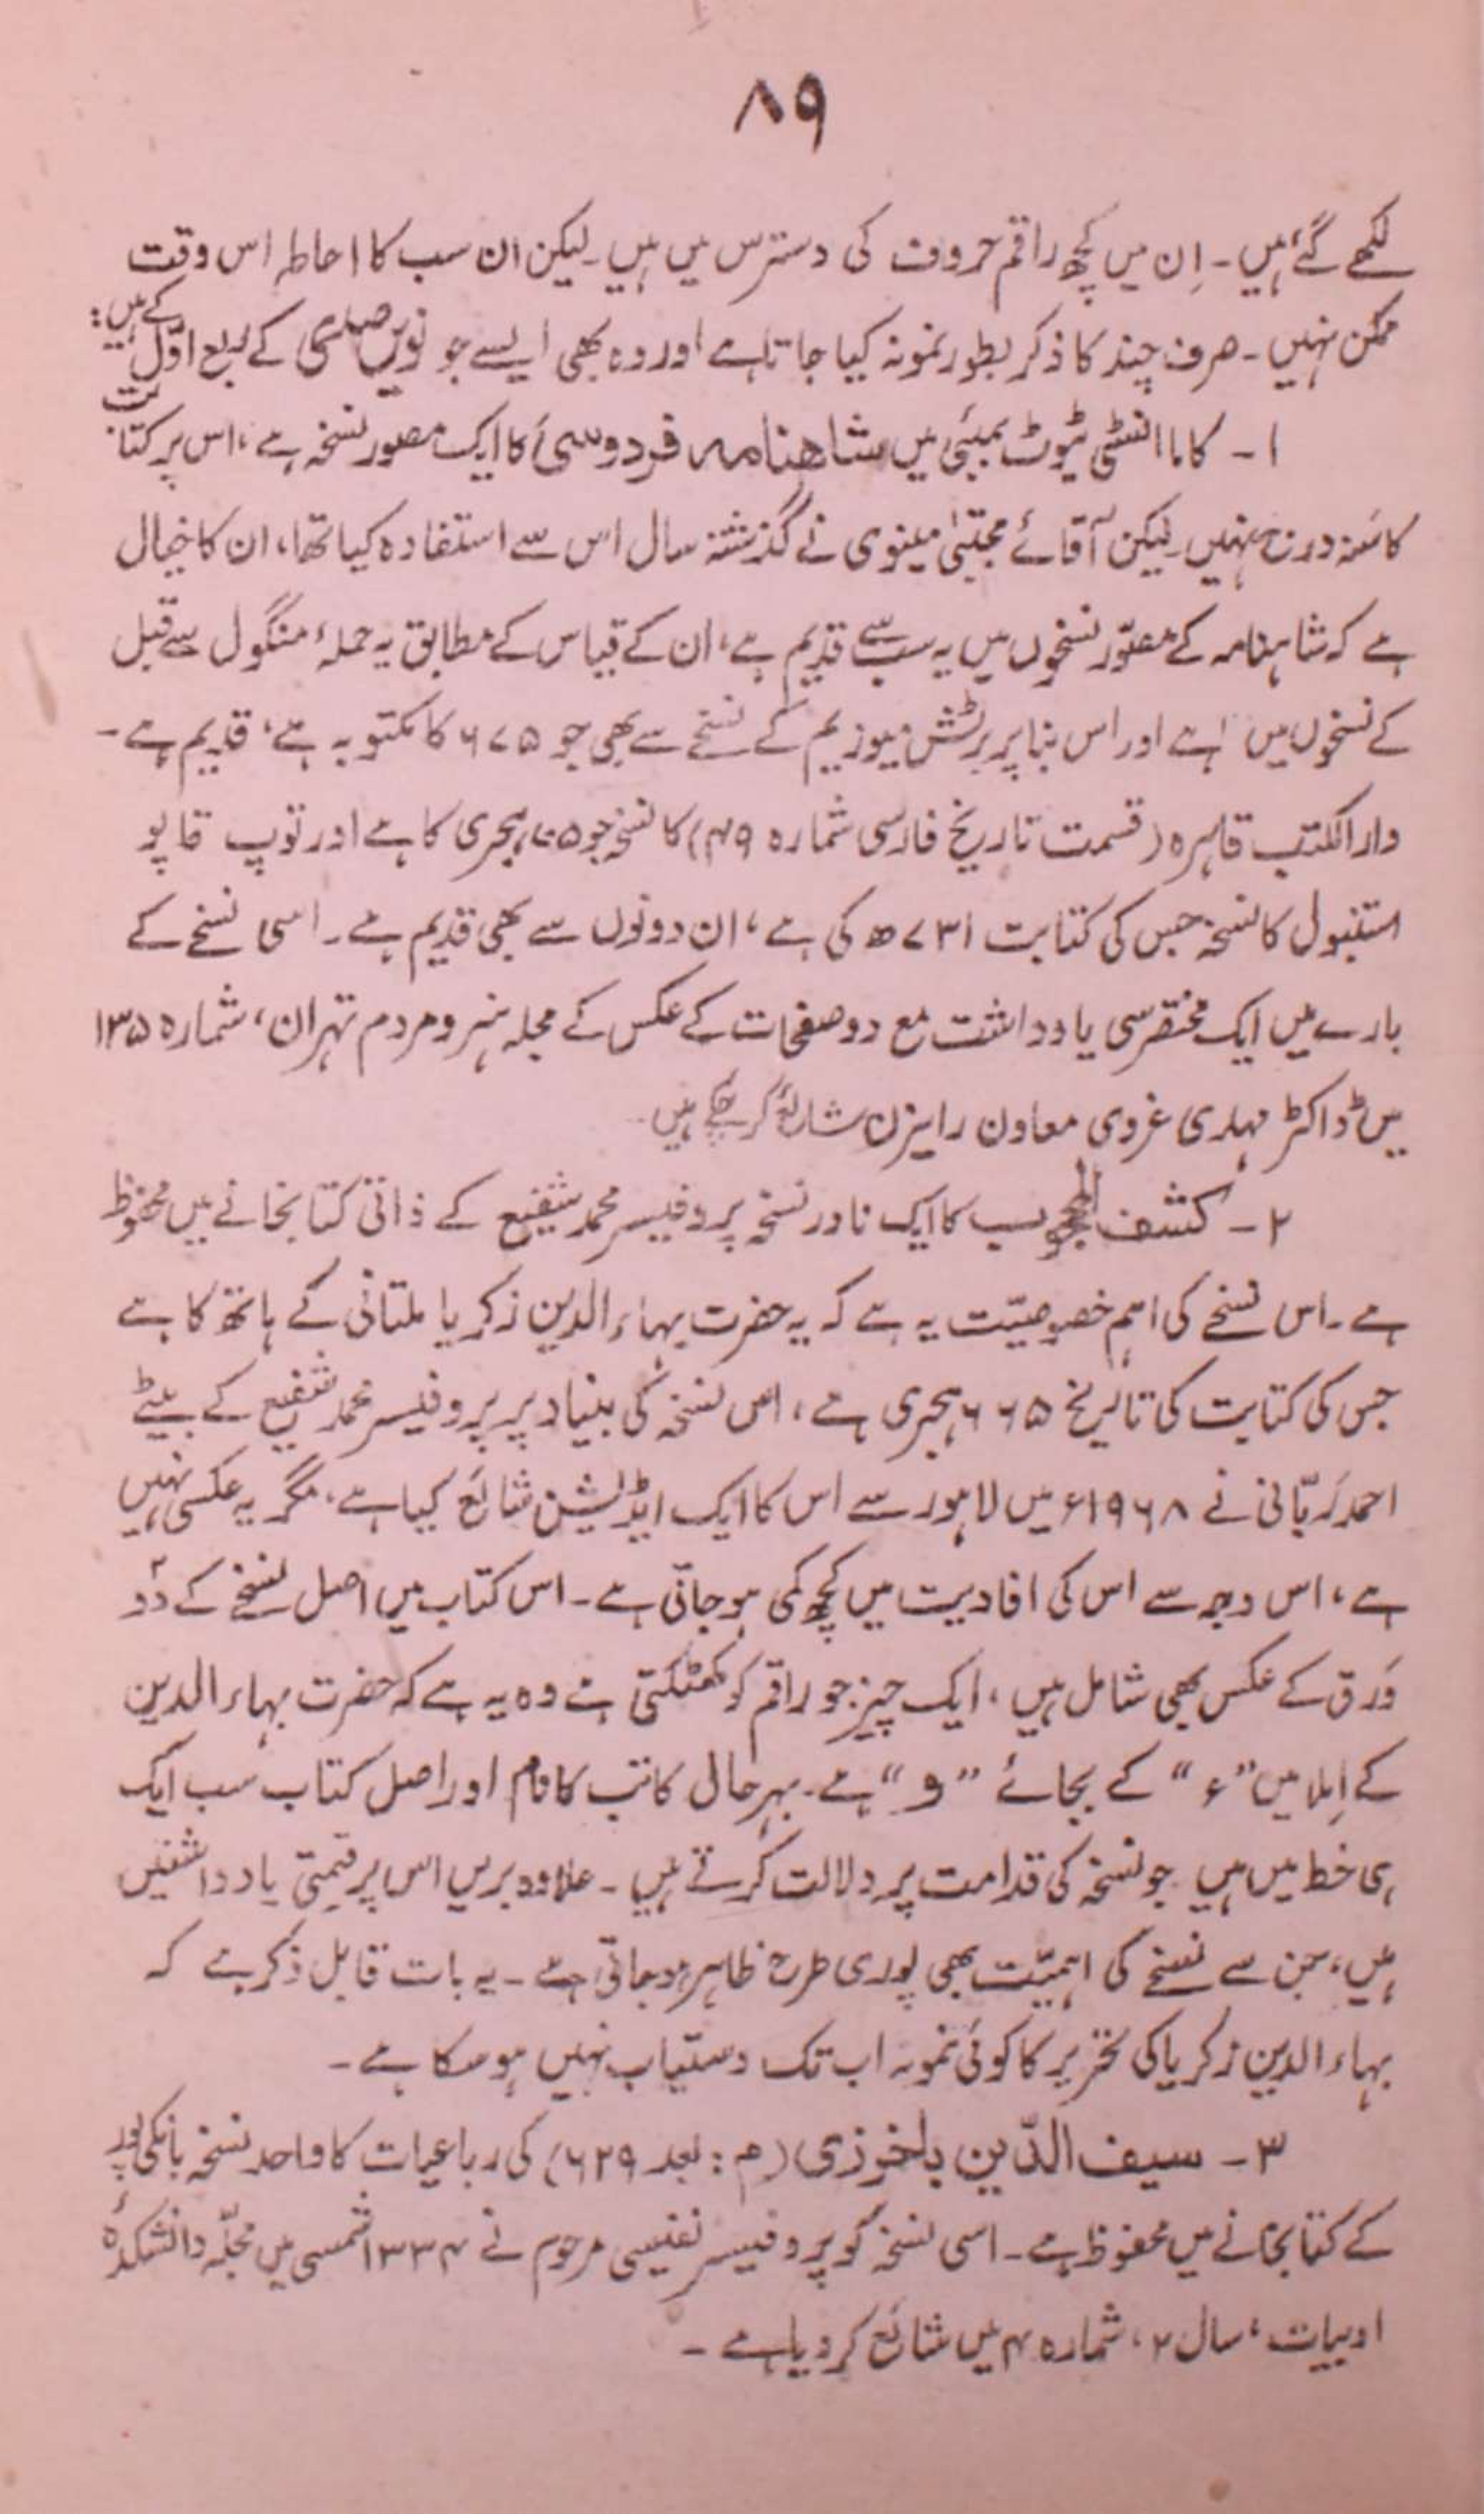 ۸۹
لکھے گئے ہیں۔ اِن میں کچھ راقم حروف کی دسترس میں ہیں۔ لیکن ان سب کا احاطہ اس وقت
ممکن نہیں۔ صرف چند کا ذکر بطور نمونہ کیا جاتا ہے اور وہ بھی ایسے جو نویں صدی کے ربع اوّل کے ہیں:
۱۔ کاما انسٹی ٹیوٹ بمبئی میں شاهنامہ فردوسی کا ایک مصور نسخہ ہے، اس پر کتابت
کا سَنہ درج نہیں۔ لیکن آقائے مجتبیٰ مینوی نے گذشتہ سال اس سے استفادہ کیا تھا، ان کا خیال
ہے کہ شاہنامہ کے مصوّر نسخوں میں یہ سب سے قدیم ہے، ان کے قیاس کے مطابق یہ حملۂ منگول سے قبل
کے نسخوں میں ہے اور اس بنا پر برٹش میوزیم کے نسخے سے بھی جو ۶۷۵ کا مکتوبہ ہے، قدیم ہے۔
دارالکتب قاہرہ (قسمت تاریخ فارسی شمارہ ۴۹) کا نسخہ جو ۷۰۵ ہجری کا ہے اور توپ قاپو
استنبول کا نسخہ جس کی کتابت ۷۳۱ھ کی ہے، ان دونوں سے بھی قدیم ہے۔ اسی نسخے کے
بارے میں ایک مختصر سی یادداشت مع دو صفحات کے عکس کے مجلہ ہنر و مردم تہران، شمارہ ۱۳۵
میں ڈاکٹر مہدی غروی معاون رایزن شائع کر چکے ہیں۔
۲۔ کشف المحجوب کا ایک نادر نسخہ پروفیسر محمد شفیع کے ذاتی کتابخانے میں محفوظ
ہے۔ اس نسخے کی اہم خصوصیّت یہ ہے کہ یہ حضرت بہاء الدین زکریا ملتانی کے ہاتھ کا ہے
جس کی کتابت کی تاریخ ۶۶۵ ہجری ہے، اس نسخہ کی بنیاد پر پروفیسر محمد شفیع کے بیٹے
احمد ربّانی نے ۱۹۶۸ء میں لاہور سے اس کا ایک ایڈیشن شائع کیا ہے، مگر یہ عکسی نہیں
ہے، اس وجہ سے اس کی افادیت میں کچھ کمی ہو جاتی ہے۔ اس کتاب میں اصل نسخے کے دو
وَرق کے عکس بھی شامل ہیں، ایک چیز جو راقم کو کھٹکتی ہے وہ یہ ہے کہ حضرت بہاء الدین
کے اِملا میں ”ء“ کے بجائے ”و“ ہے۔ بہر حال کاتب کا نام اور اصل کتاب سب ایک
ہی خط میں ہیں جو نسخہ کی قدامت پر دلالت کرتے ہیں۔ علاوہ بریں اس پر قیمتی یادداشتیں
ہیں، جن سے نسخے کی اہمیّت بھی پوری طرح ظاہر ہو جاتی ہے۔ یہ بات قابل ذکر ہے کہ
بہاء الدین زکریا کی تحریر کا کوئی نمونہ اب تک دستیاب نہیں ہو سکا ہے۔
۳۔ سیف الدّین باخرزی (م: بعد ۶۲۹) کی رباعیات کا واحد نسخہ بانکی پور
کے کتابخانے میں محفوظ ہے۔ اسی نسخہ کو پروفیسر نفیسی مرحوم نے ۱۳۳۴ شمسی میں مجلّہ دانشکدۂ
ادبیات، سال ۲، شمارہ ۴ میں شائع کر دیا ہے۔